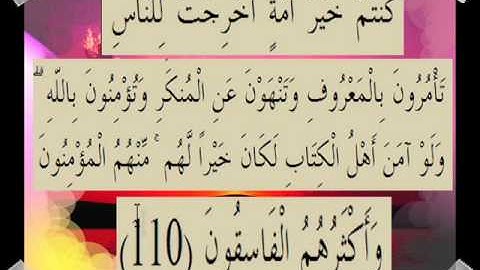 كُنتُمْ خَيْرَ أُمَّةٍ أُخْرِجَتْ لِلنَّاسِ
تَأْمُرُونَ بِالْمَعْرُوفِ وَتَنْهَوْنَ عَنِ الْمُنكَرِ وَتُؤْمِنُونَ بِاللَّهِ ۗ
وَلَوْ آمَنَ أَهْلُ الْكِتَابِ لَكَانَ خَيْراً لَّهُم ۚ مِّنْهُمُ الْمُؤْمِنُونَ
وَأَكْثَرُهُمُ الْفَاسِقُونَ (110)